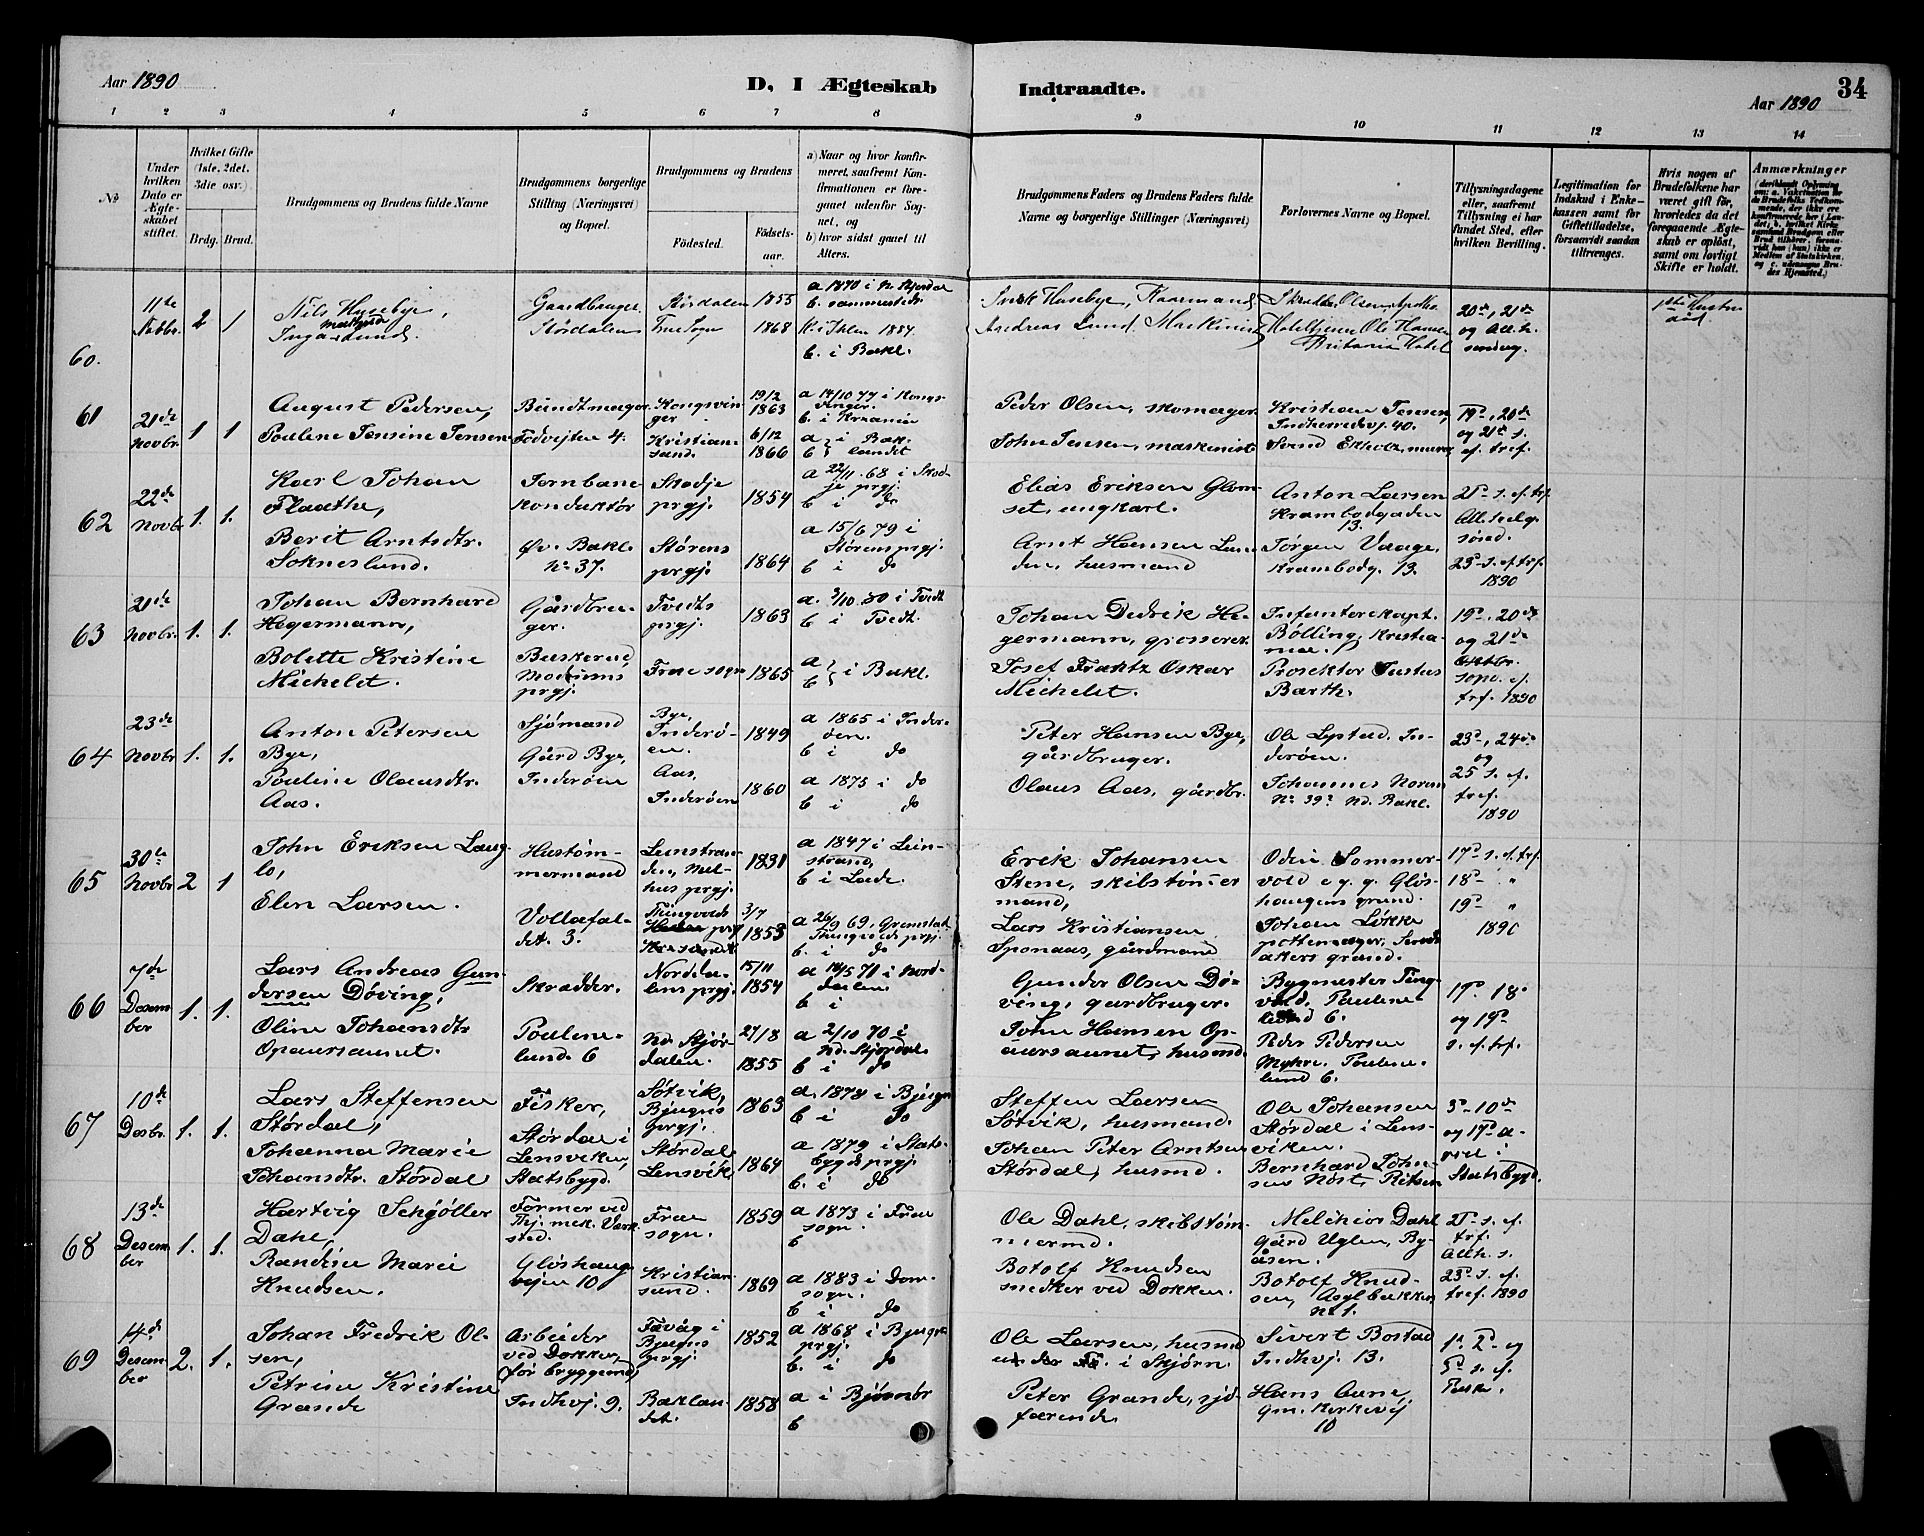 Aar 1890
D, I Ægteskab Indtraadte.
34
Aar 1890
1 2 3 4 5 6 7 8 9 10 11 12 13 14
No
Under hvilken Dato er Ægteskabet stiftet.
Hvilket Gifte (1ste, 2det, 3die osv.)
Brdg. Brud.
Brudgommens og Brudens fulde Navne
Brudgommens borgerlige Stilling (Næringsvei) og Bopæl.
Brudgommens og Brudens
Fødested.
Fødselsaar.
a) Naar og hvor konfirmeret, saafremt Konfirmationen er foregaaet udenfor Sognet, og
b) hvor sidst gaaet til Alters.
Brudgommens Faders og Brudens Faders fulde Navne og borgerlige Stillinger (Næringsvei)
Forlovernes Navne og Bopæl.
Tillysningsdagene eller, saafremt Tillysning ei har fundet Sted, efter hvilken Bevilling.
Legitimation for Indskud i Enkekassen samt for Giftetilladelse, forsaavidt saadan tiltrænges.
Hvis nogen af Brudefolkene har været gift før, hvorledes da det foregaaende Ægteskab er opløst, samt om lovligt Skifte er holdt.
Anmærkninger
60.
11te Novbr. 2 1
Nils Husebye,
Inga Lund.
Gaardbruger
Størdalen
Størdalen 1855
Frue Sogn 1868
b. sammesteds
b. i Bakl.
Husebye, Kaarmand
Andreas Lund. Maskinist
Ole Hansen
Britania Hotel
20de, 21de
og
1ste Hustru død.
61
21de Novbr. 1 1
August Pedersen,
Pouline Jensine Jensen
Bundtmager.
Kongsvinger
Kristiansund.
19/2 1863
6/12 1866
a 14/10 77 i Kongsvinger.
b. i Kr.ania
a } i Bak-
b } landet
Peder Olsen, skomager
John Jensen, maskinist
Kristian Jensen,
Indherredsvj. 40.
19de, 20de
og 21de s.
ef. tref.
62
22de Novbr 1. 1.
Karl Johan
Flaathe,
Berit Arntsdtr.
Sokneslund.
Jernbane-
konduktør
Øv. Bakl.
No 37.
Skodje
prgj.
Størens
prgj.
1854
1864
a 22/11 68 i Skodje prgj.
b i do
a 15/6 79 i
Størens prgj.
b i do
Elias Eriksen Glomset, ungkarl.
Arnt Hansen Lunden, husmand
Anton Larsen
Krambodgaden
13.
Jørgen Vaage,
Krambodg. 13.
21de s. ef. trf.
23de s. ef. trf.
1890
63
21de Novbr. 1. 1.
Johan Bernhard
Hegermann,
Bolette Kristine
Michelet.
Gårdbruger.
Buskerud,
Modums
prgj.
Tvedts
prgj.
Frue sogn
1863
1865
a. 3/10 80 i Tvedt
b i Tvedt.
a } i Bakl.
b }
Johan Didrik Hegermann, grosserer
Josef Frantz Oskar
Michelet.
Infanterikapt.
Bølling, Kristiania.
Prosektor Justus
Barth.
19de, 20de
og 21de
trf. 1890
64
23de Novbr 1. 1.
Anton Petersen
Bye,
Pauline Olausdtr.
Aas.
Sjømand
Gård Bye,
Inderøen
Bye,
Inderøen.
Aas,
Inderøen
1849
1860
a 1865 i Inderøen.
b i do
a 1875 i do
b i do
Peter Hansen Bye,
gårdbruger.
Olaus Aas, gårdbr.
Ole Lystad, Inderøen.
Johannes Noren
No 39a Nd. Bakl.
23de, 24de
og
25 s. ef.
tref.
1890
65
30te Novbr. 2 1
John Eriksen Lauglo,
Elen Larsen.
Hustømmermand
Vollafaldet. 3.
Leinstranden, Melhus prgj.
Thingvolds
1831
3/7 1853
a 1847 i Leinstrand,
b i Lade.
a 26/9 69, Gremstad,
Thingvolds prgj.
b. i do
Erik Johansen
Stene, skibstømmermand,
Lars Kristiansen
Sponaas, gårdmand
Odin Sommervold e.g.g. Gløshaugens grund.
Johan Løkke
pottemager,
17de s. ef. trf.
18de "
19de "
1890
66
7de Desember 1. 1.
Lars Andreas Gundersen Døving,
Oline Johansdtr
Opaursaunet.
Skrædder.
Poulenelund 6
Norddalens prgj.
Nd. Stjørdalen.
15/11 1854
27/8 1855
a 14/5 71 i Norddalen.
b i
a 2/10 70 i
Nd. Stjørdal.
b i do
Gunder Olsen Døving, gårdbruger.
John Hansen Opaursaunet, husmd.
Bygmester Tingvold, Paulinelund 6.
Peder Pedersen
Myhre, Poulenelund 6.
17de 18de
og 19de
s. ef. trf.
67
10de Desbr. 1. 1.
Lars Steffensen
Størdal,
Johanna Marie
Johansdtr. Størdal
Fisker,
Størdal i
Lensviken,
Statsbygd.
Søtvik,
Bjugns
prgj.
Størdal
Lensvik
1863
1864
a. 1878 i Bjugn
b i do
a 1879 i Statsbygds prgj.
b. i do
Steffen Larsen
Søtvik, husmand.
Johan Peter Arntsen
Størdal, husmd.
Ole Johansen
Størdal i Lensviken.
Bernhard Johnsen Nøst, Ritsen
3de 10de
og 17de a-
pril i
Statsbygd.
68
13de Desember 1. 1.
Hartvig Schjøller
Dahl,
Randine Marie
Knudsen.
Former ved
Thj. mek. Verksted.
Gløshaugvejen 10
Frue
sogn.
Kristiansund.
1859
1869
a 1873 i Frue
sogn.
b
a 1883 i Domsogn.
b i do
Ole Dahl, skibstømmermd.
Botolf Knudsen
snedker ved Dokken.
Melchior Dahl
gård Uglen, Byåsen.
Botolf Knudsen, Asylbakken
no 1.
21de s. ef.
trf.
Allh. s.
23de s. ef.
tref. 1890
69
14de Desember 2. 1.
Johan Fredrik Olsen,
Petrine Kristine
Grande
Arbeider
ved Dokken,
(før bryggemd)
Indhvj. 9.
Favåg i
Bjugns
prgj.
Baklandet.
1852
1858
a 1868 i Bjugns
prgj.
b. i do
a i Bjørnør
b
Ole Larsen, husmd
i Skjørn.
Peter Grande, sjøfarende.
Sivert Bostad
Indhvj. 13.
Hans Aune,
Gm. Kirkevej
10
1ste 2de og
3de s. ef.